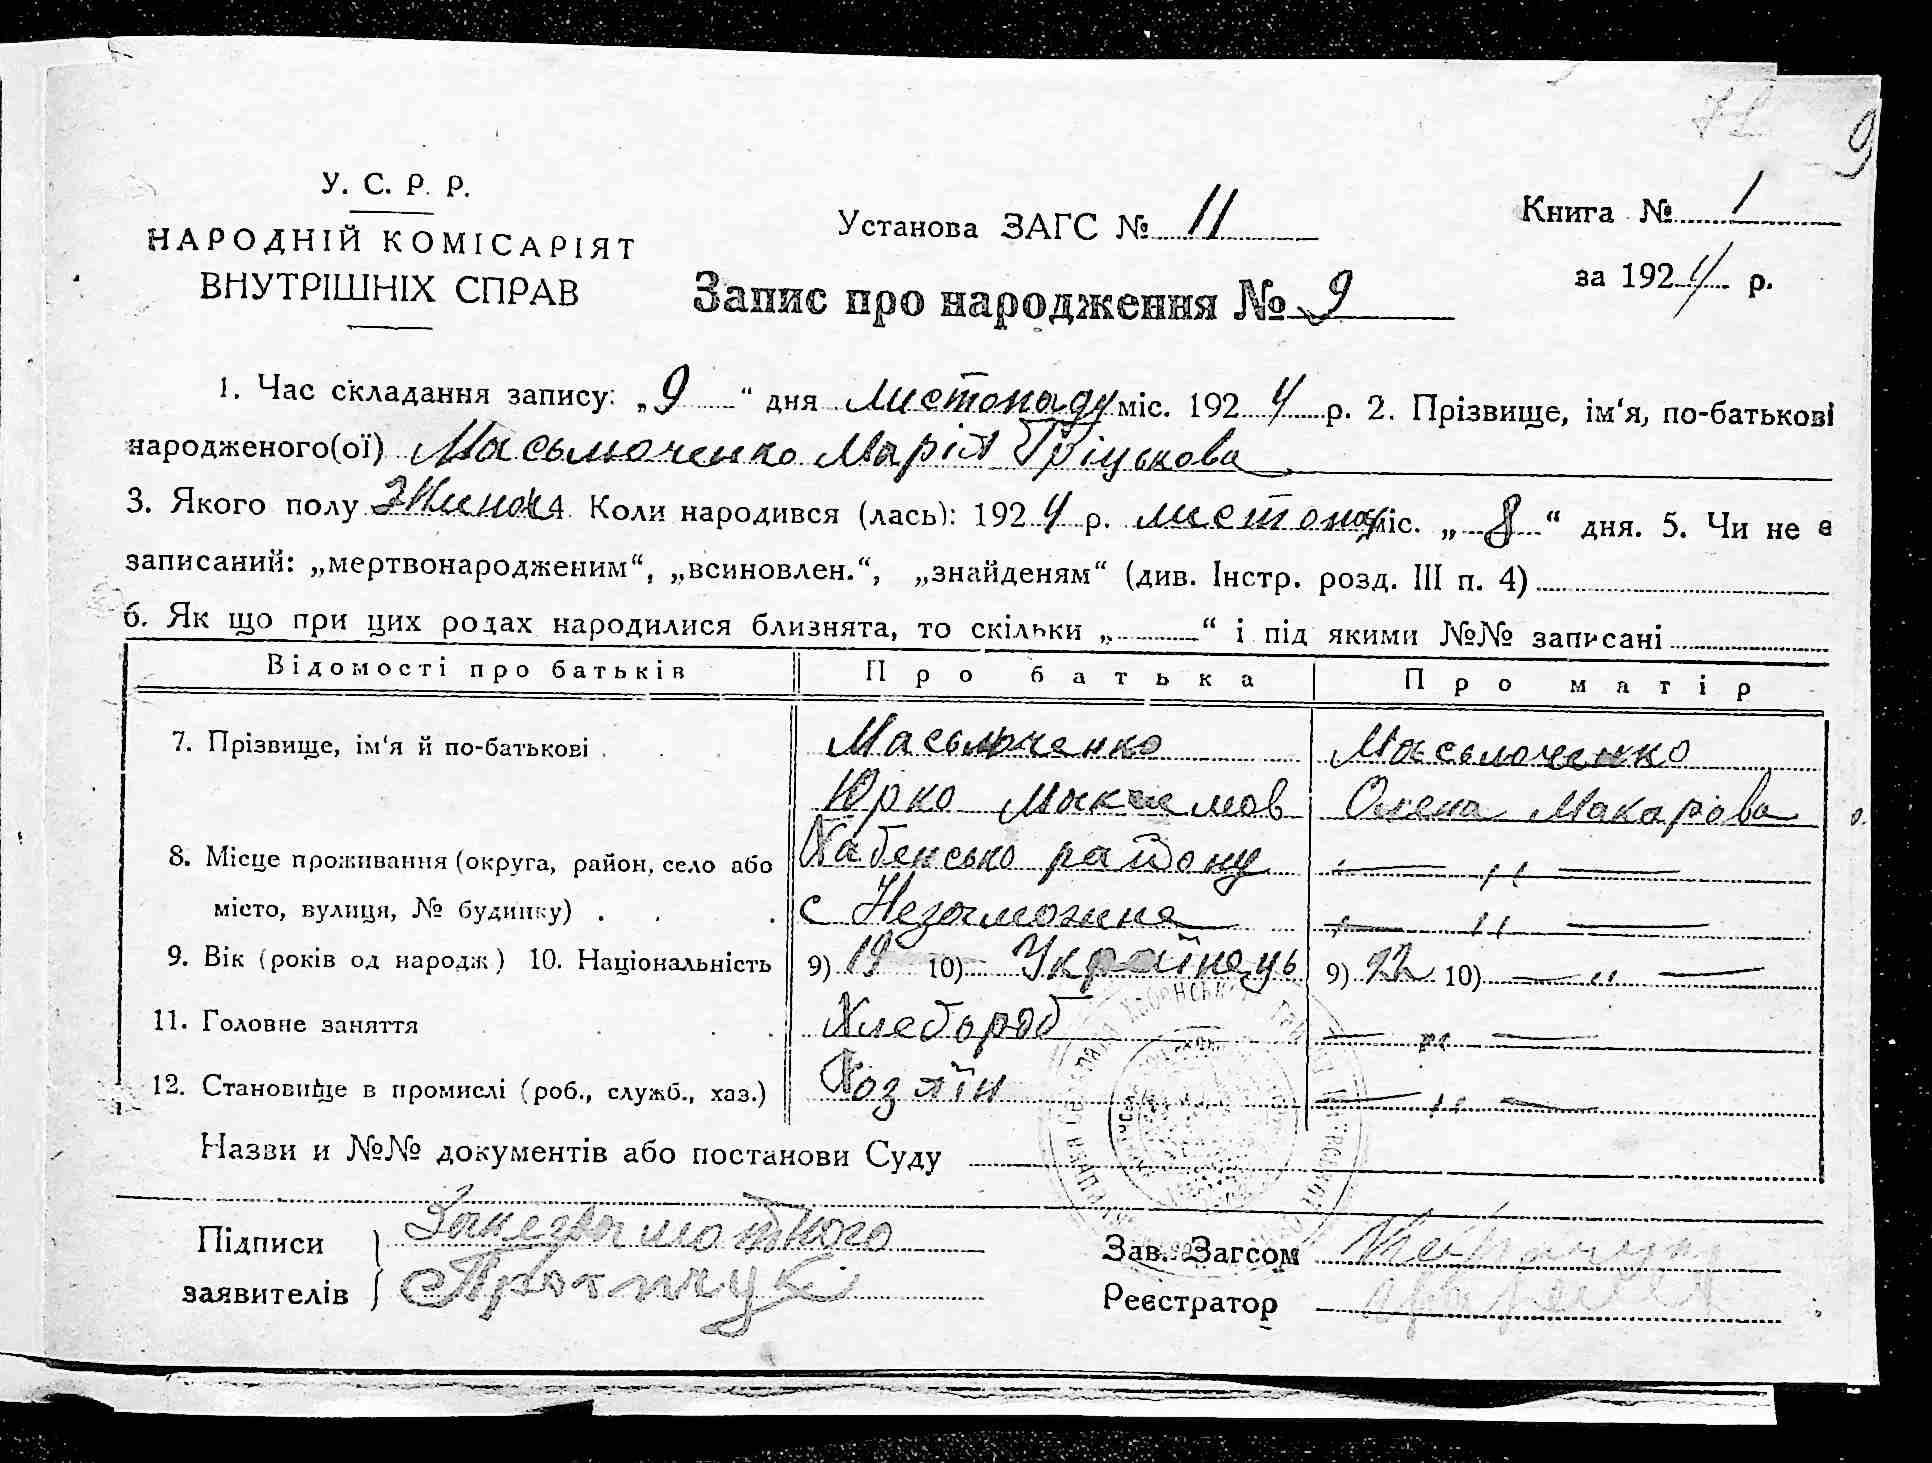 9
У. С. Р. Р.
НАРОДНІЙ КОМІСАРІЯТ
ВНУТРІШНІХ СПРАВ
Установа ЗАГС № 11
Книга № 1
за 1924 р.
Запис про народження № 9
1. Час складання запису: „9“ дня листопаду міс. 1924 р. 2. Прізвище, ім‘я, по-батькові
народженого(ої) Масьлюченко Марія Гріцькова
3. Якого полу Жиноч 4. Коли народився (лась): 1924 р. листопад міс. „8“ дня. 5. Чи не є
записаний: „мертвонародженим“, „всиновлен.“, „знайденям“ (див. Інстр. розд. III п. 4)
6. Як що при цих родах народилися близнята, то скільки „ “ і під якими №№ записані
Відомості про батьків Про батька Про матір
7. Прізвище, ім‘я й по-батькові Масьлюченко Масьлюченко
Юрко Максимов Олена Макарова
8. Місце проживання (округа, район, село або Хабенсько району — „ —
місто, вулиця, № будинку) с Незаможне — „ —
9. Вік (років од народж) 10. Національність 9) 19 10) Українець 9) 22 10) — „ —
11. Головне заняття Хлебороб — „ —
12. Становище в промислі (роб., служб., хаз.) Хозяїн — „ —
Назви и №№ документів або постанови Суду
Підписи
заявителів
За неграмотного
Зав. Загсом
Реєстратор